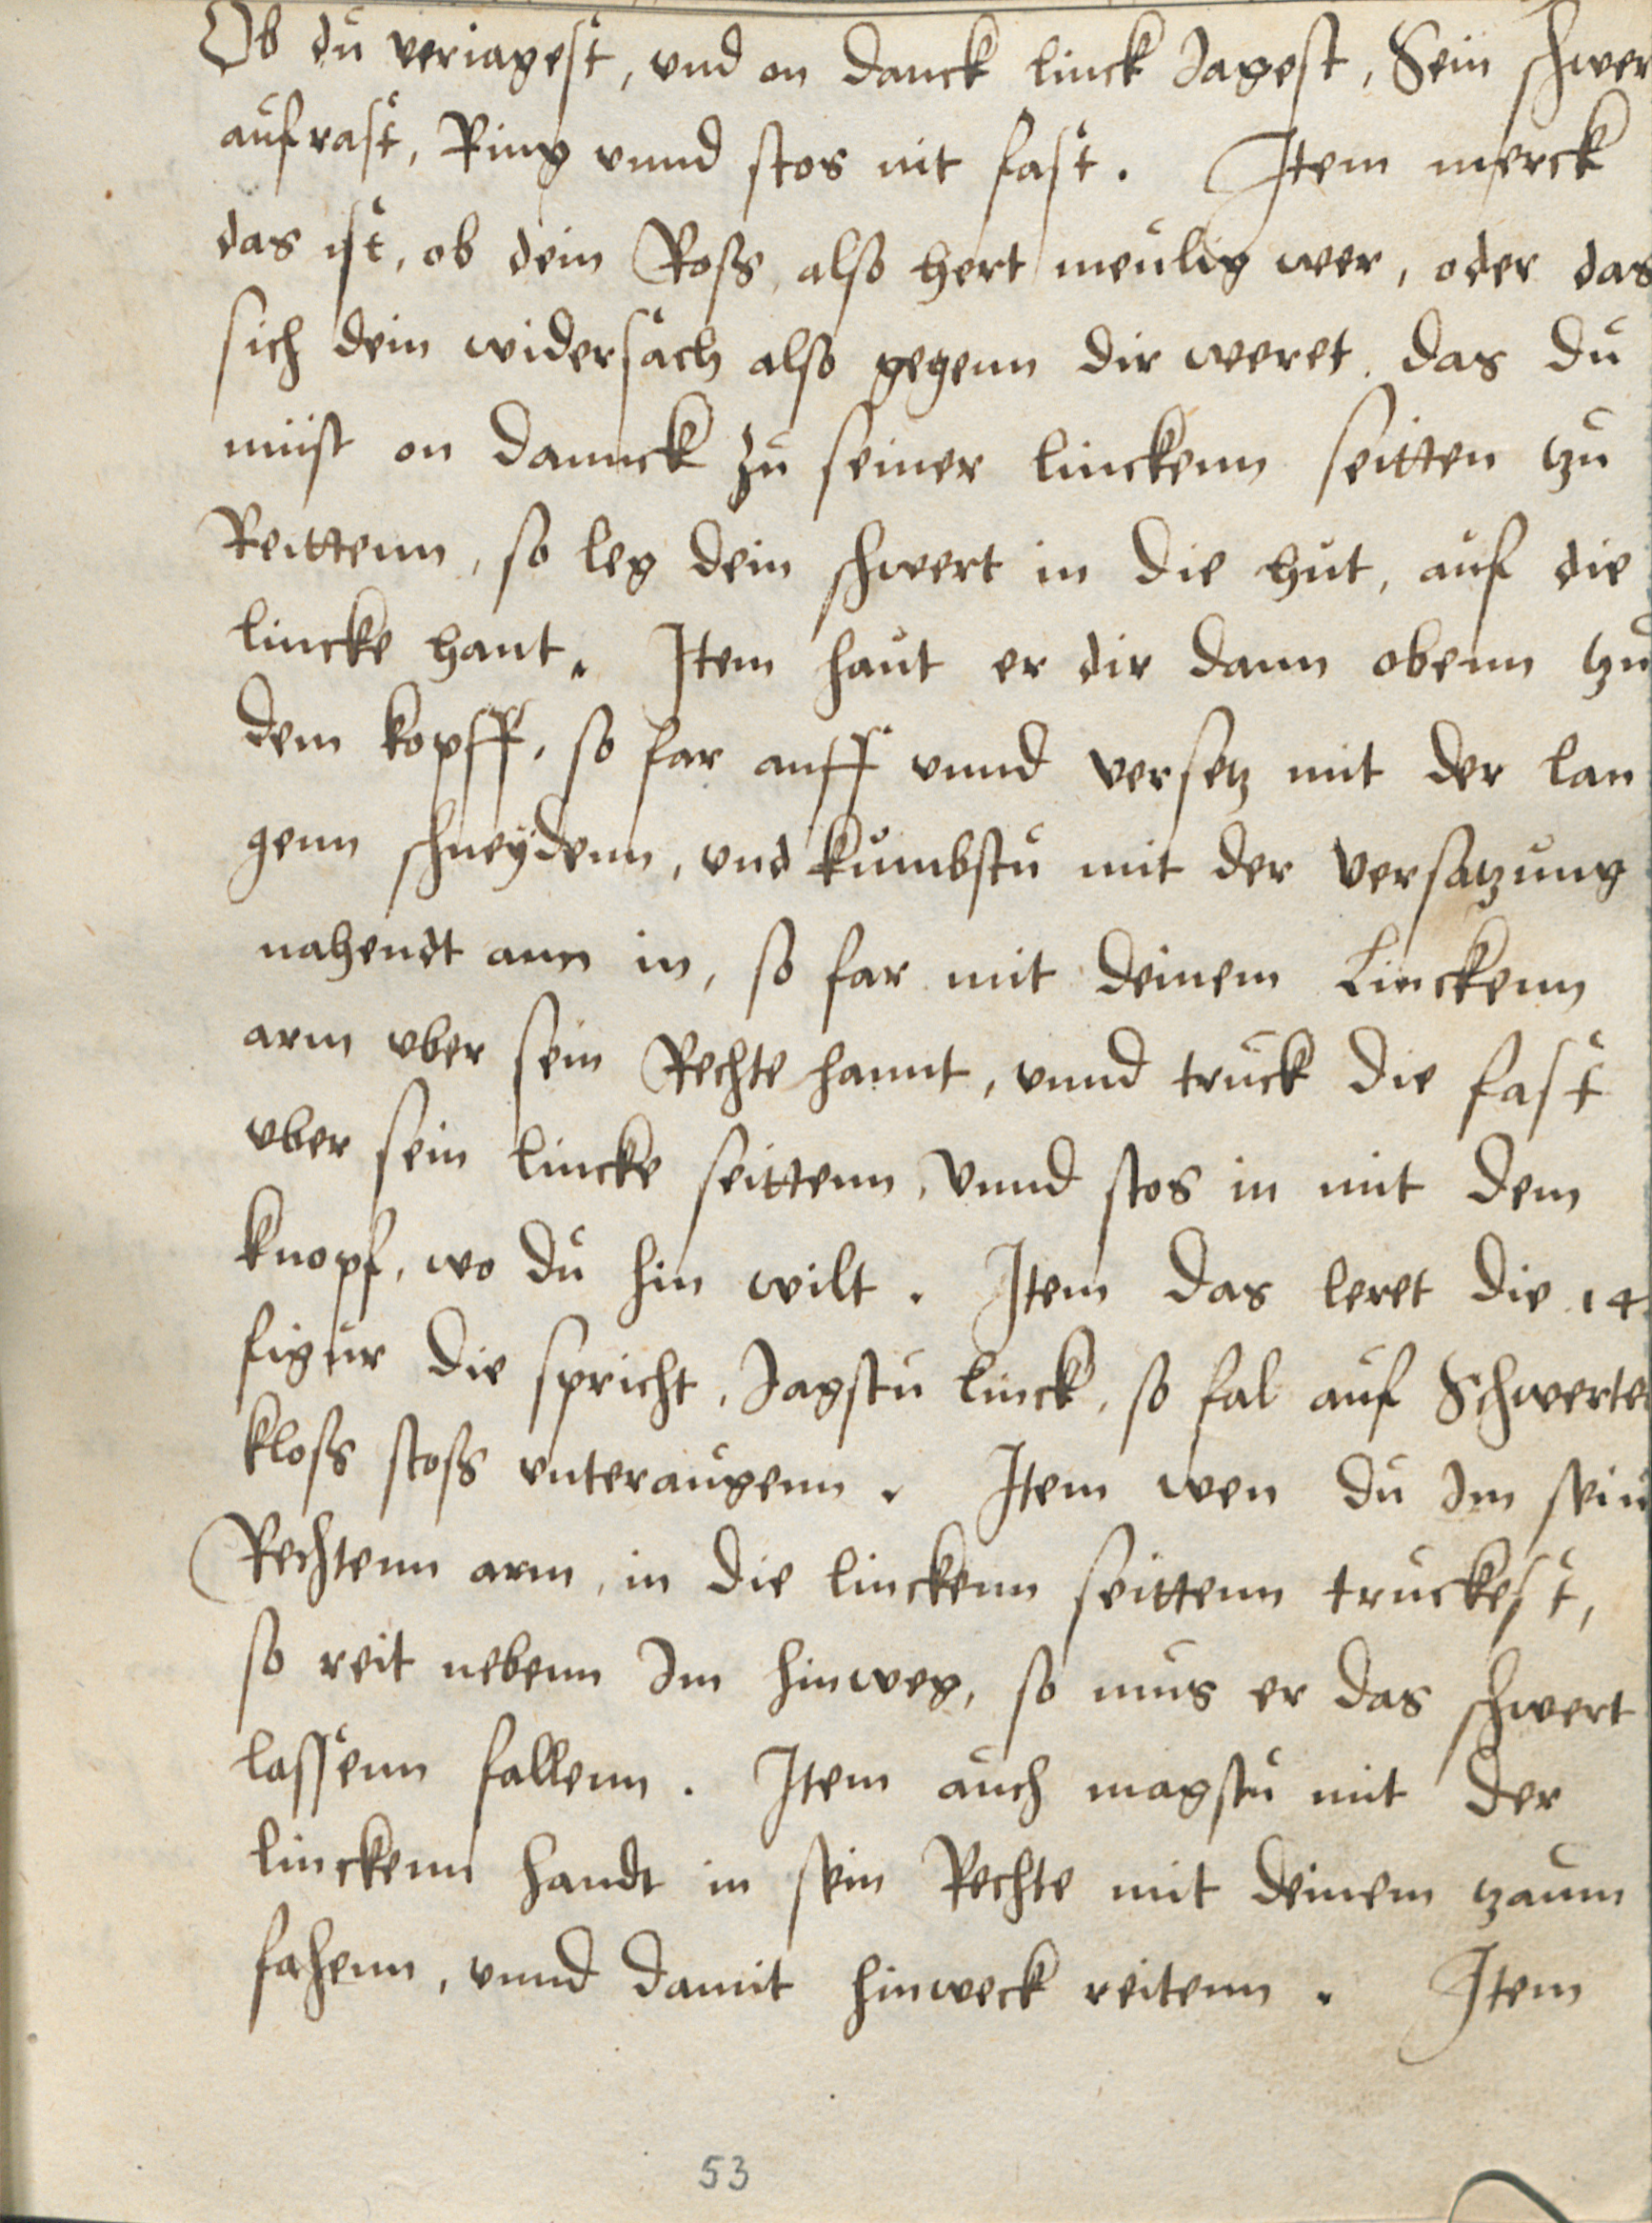 Ob du veriagest, vnd on danck linck Jagest, Sein schwer
aufrast, Ring vnnd stos nit fast. Item merck
das ist, ob dein Roß also hert meulig wer, oder das
sich dein widersach also gegenn dir weret das du
müst on dannck zu seiner linckenn seitten tzu
Reittenn, so leg dein schwert in die hut, auf die
lincke hant. Item haut er dir dann obenn tzu
dem kopff, so far auff vnnd versetz mit der lan
genn schneÿdenn, vnd kumbstu mit der versatzung
nahendt ann in, so far mit deinem Linckenn
arm vber sein Rechte hannt, vnnd truck die fast
vber sein lincke seittenn, Vnnd stos in mit dem
knopf, wo du hin wilt. Item das leret die 14.
figur die spricht, Jagstu linck, so fal auf Schwertes
kloß stoß vnteraugenn. Item wen du Im sein
Rechtenn arm, in die linckenn seittenn truckest,
so reit nebenn Im hinweg, so mus er das schwert
lassenn fallenn. Item auch magstu mit der
linckenn handt in sein Rechte mit deinem tzaum
fahenn, vnnd damit hinweck reitenn. Item
53